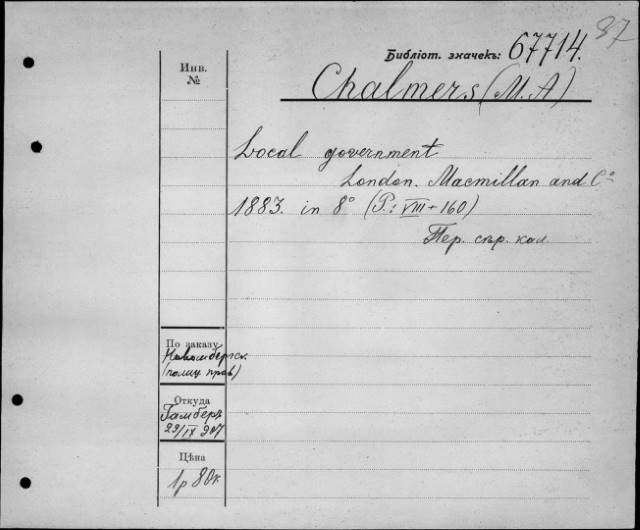 37
Библіот. значекъ: 67714.
Инв.
№
Chalmers (M. A)
Local government
London. Macmillan and Cº
1883. in 8° (P.: VIII + 160)
Пер. сѣр. кал.
По заказу
Новомбергск.
(полиц прав)
Откуда
Гамберъ
29/IX 907
Цѣна
1 р 80 к